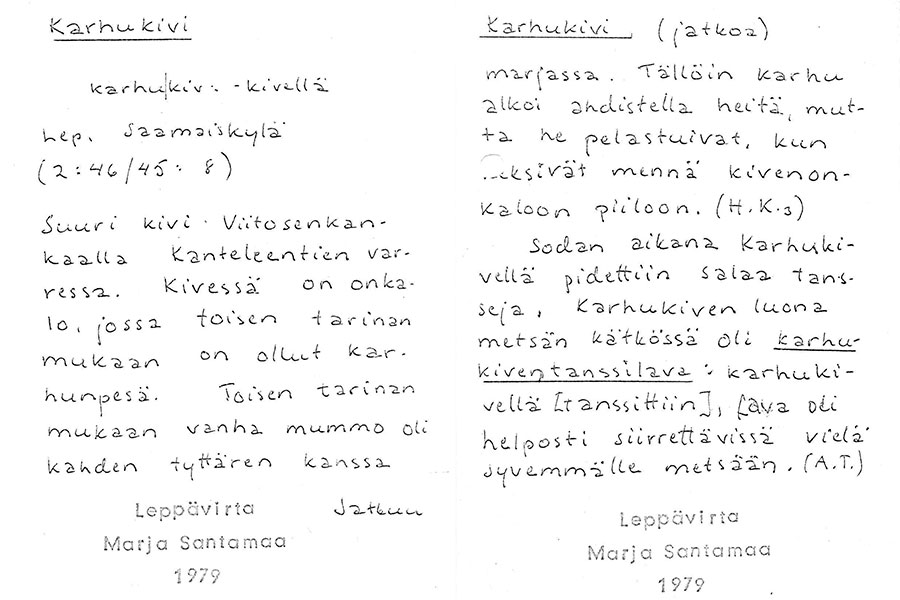 Karhukivi
karhu|kiv: -kivellä
hep. Saamaiskylä
(2:46/45: 8)
Suuri kivi Viitosenkan-
kaalla Kanteleentien var-
ressa. Kivessä on onka-
lo, jossa toisen tarinan
mukaan on ollut kar-
hunpesä. Toisen tarinan
mukaan vanha mummo oli
kahden tyttären kanssa
Leppävirta Jatkuu
Marja Santamaa
1979
Karhukivi (jatkoa)
marjassa. Tällöin karhu
alkoi ahdistella heitä, mut-
ta he pelastuivat, kun
mennä kivenon-
kaloon piiloon. (H.K.3)
Sodan aikana Karhuki-
vellä pidettiin salaa tans-
seja. Karhukiven luona
metsän kätkössä oli karhu-
kiventanssilava : karhuki-
vellä [tanssittiin], lava oli
helposti siirrettävissä vielä
syvemmälle metsään. (A.T.)
Leppävirta
Marja Santamaa
1979